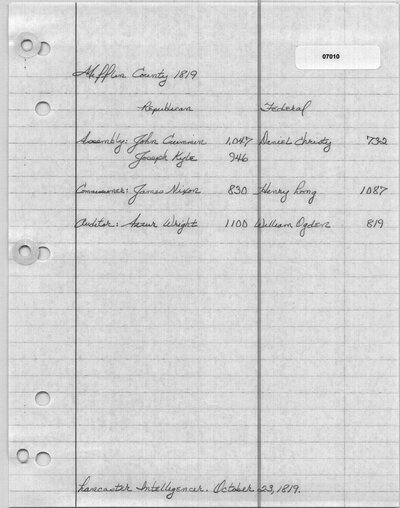 07010
Mifflin County 1819
Republican Federal
Assembly: John Cummin 1,047 Daniel Christy 732
Joseph Kyle 946
Commissioner: James Nixon 830 Henry Long 1087
Auditor: Wright 1100 William Ogden 819
Lancaster Intelligencer. October 23, 1819.